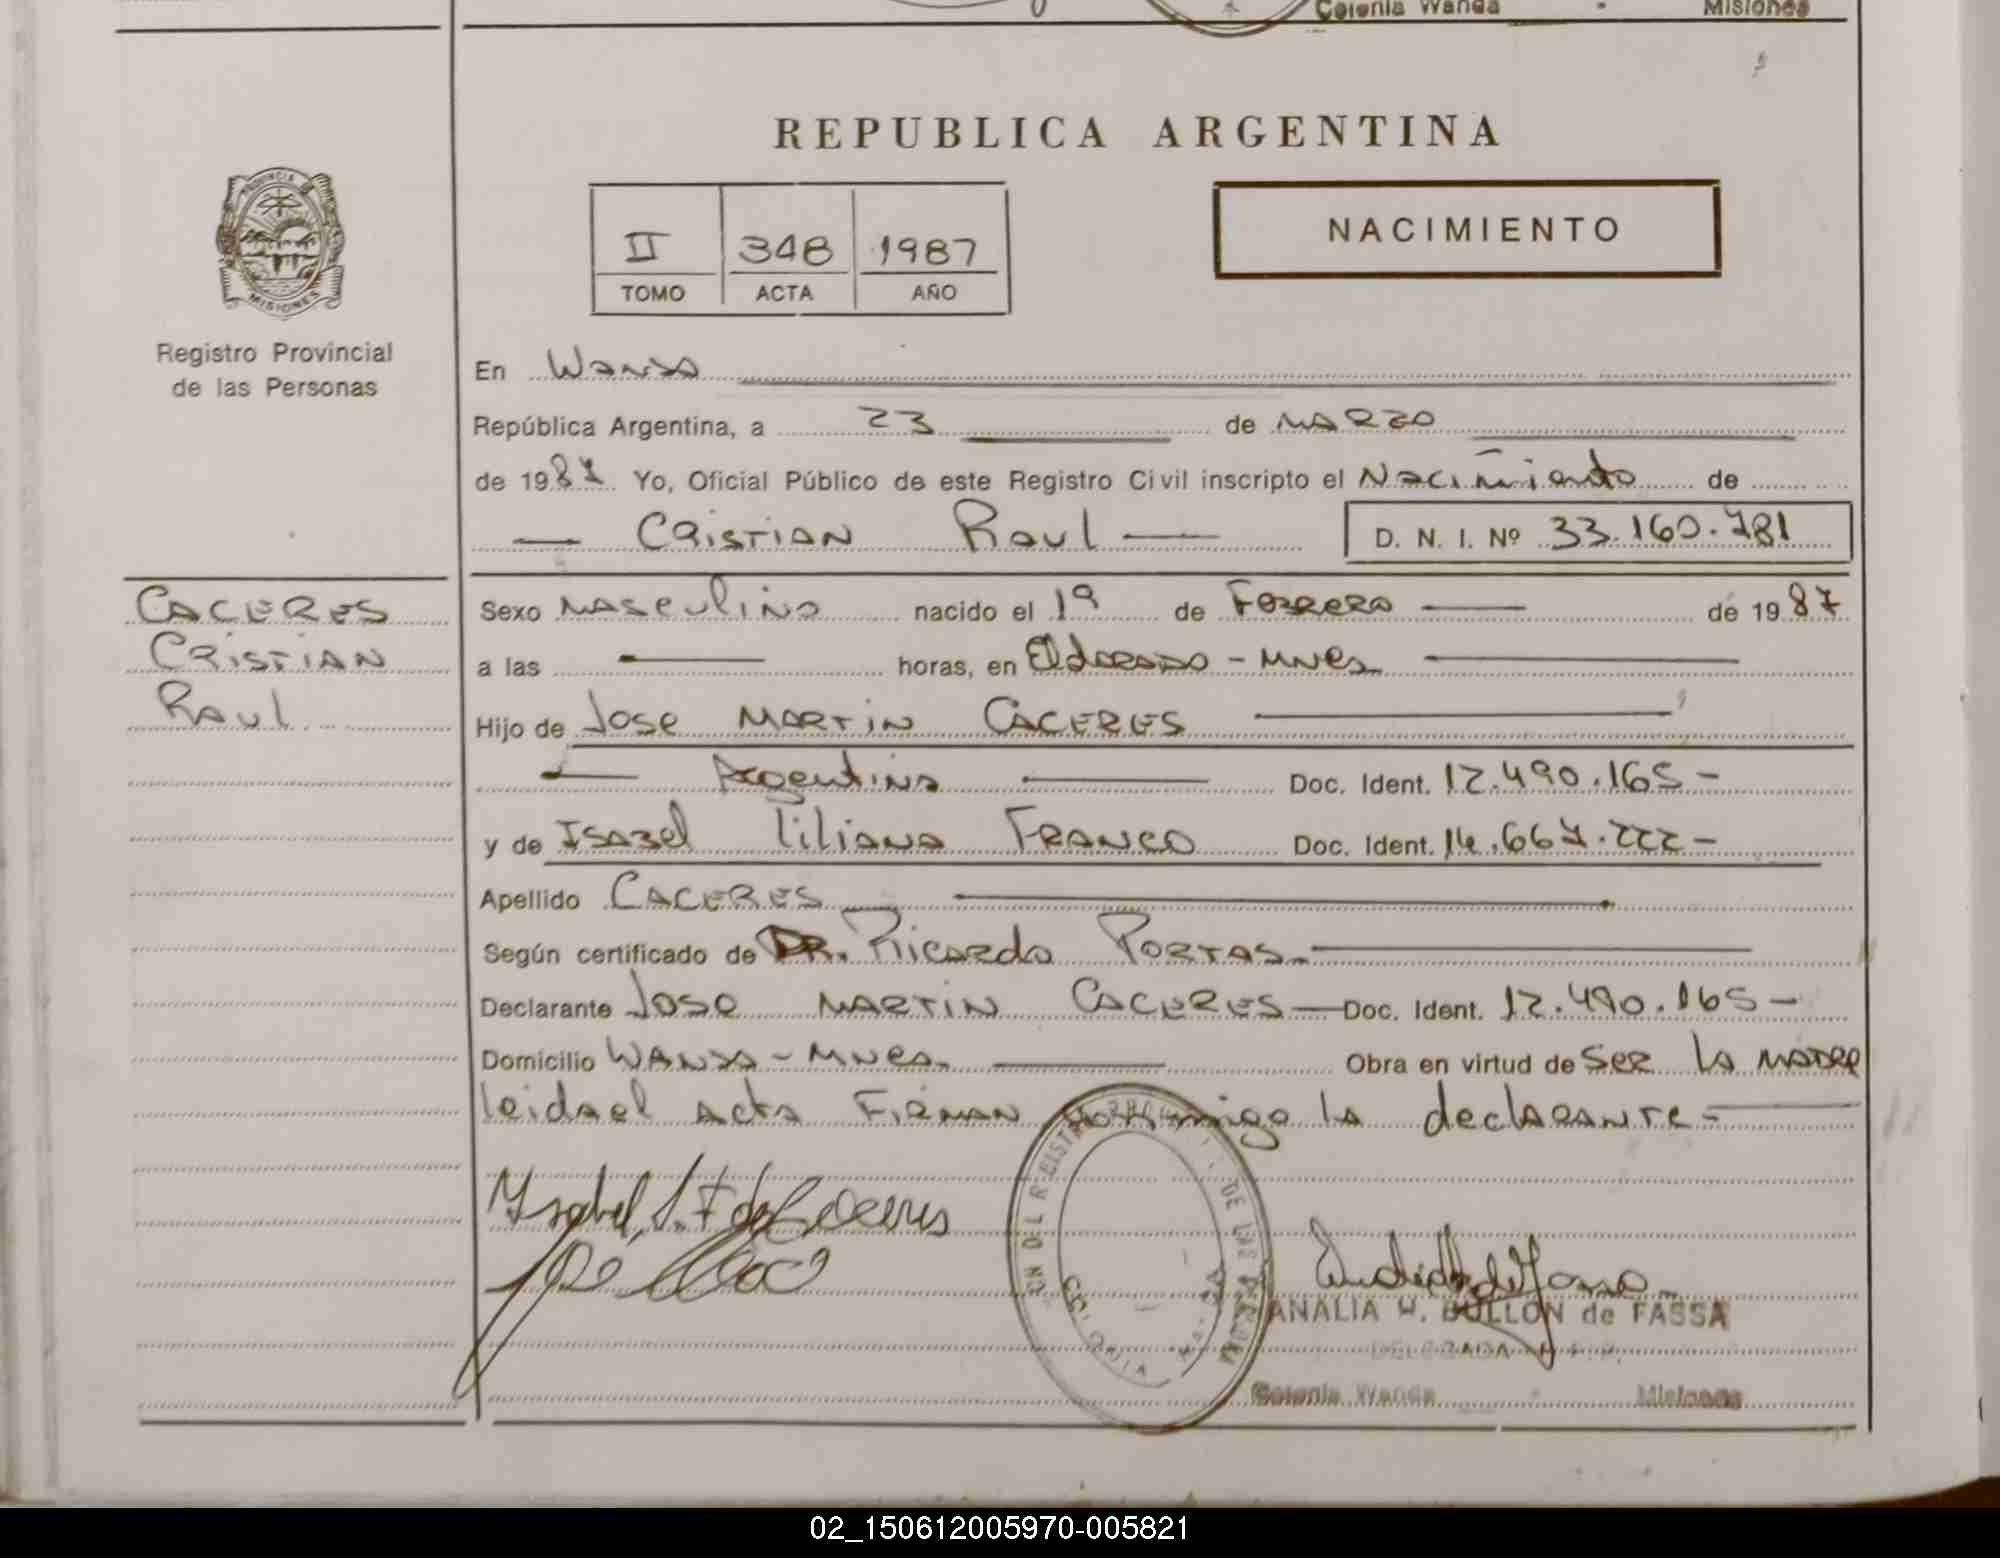 Colonia Wanda Misiones
REPUBLICA ARGENTINA
NACIMIENTO
II 348 1987
TOMO ACTA AÑO
PROVINCIA
MISIONES
Registro Provincial
de las Personas
En Wanda
República Argentina, a 23 de MARZO
de 1987 Yo, Oficial Público de este Registro Civil inscripto el Nacimiento de
CRISTIAN Raul D. N. I. Nº 33.160.781
CACERES
CRISTIAN
Raul
Sexo MASCULINO nacido el 1º de Febrero de 1987
a las horas, en Eldorado - Mnes
Hijo de Jose MARTIN CACERES
Argentina Doc. Ident. 12.490.165-
y de Isabel liliana FRANCO Doc. Ident. 14.667.222-
Apellido CACERES
Según certificado de DR. Ricardo PORTAS.
Declarante Jose MARTIN CACERES Doc. Ident. 12.490.165-
Domicilio WANDA - Mnes. Obra en virtud de Ser la MADRE
leida el Acta FIRMAN conmigo la declarante-
ANALIA W. BULLON de FASSA
DELEGADA R.P.P.
Colonia Wanda Misiones
02_150612005970-005821